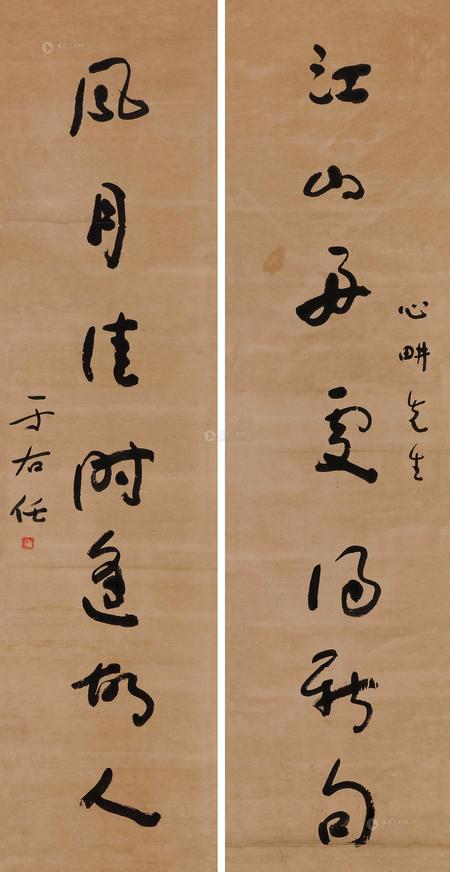 心畊先生
江山勝處得新句
風月佳時逢故人
于右任